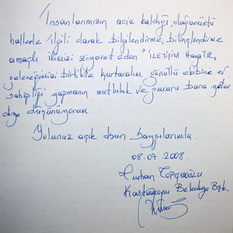 İnsanlarımızın aciz kaldığı olağanüstü
hallerle ilgili olarak bilgilendirme, bilinçlendirme
amaçlı ilimizi ziyaret eden "
geleceğimizi birlikte kurtaralım gönüllü ekibine ev
sahipliği yapmanın mutluluk ve gururu bana yeter
diye düşünüyorum.
Yolunuz açık olsun Saygılarımla
08.07.2008.
Turhan Topçuoğlu
Kastamonu Belediye Bşk.